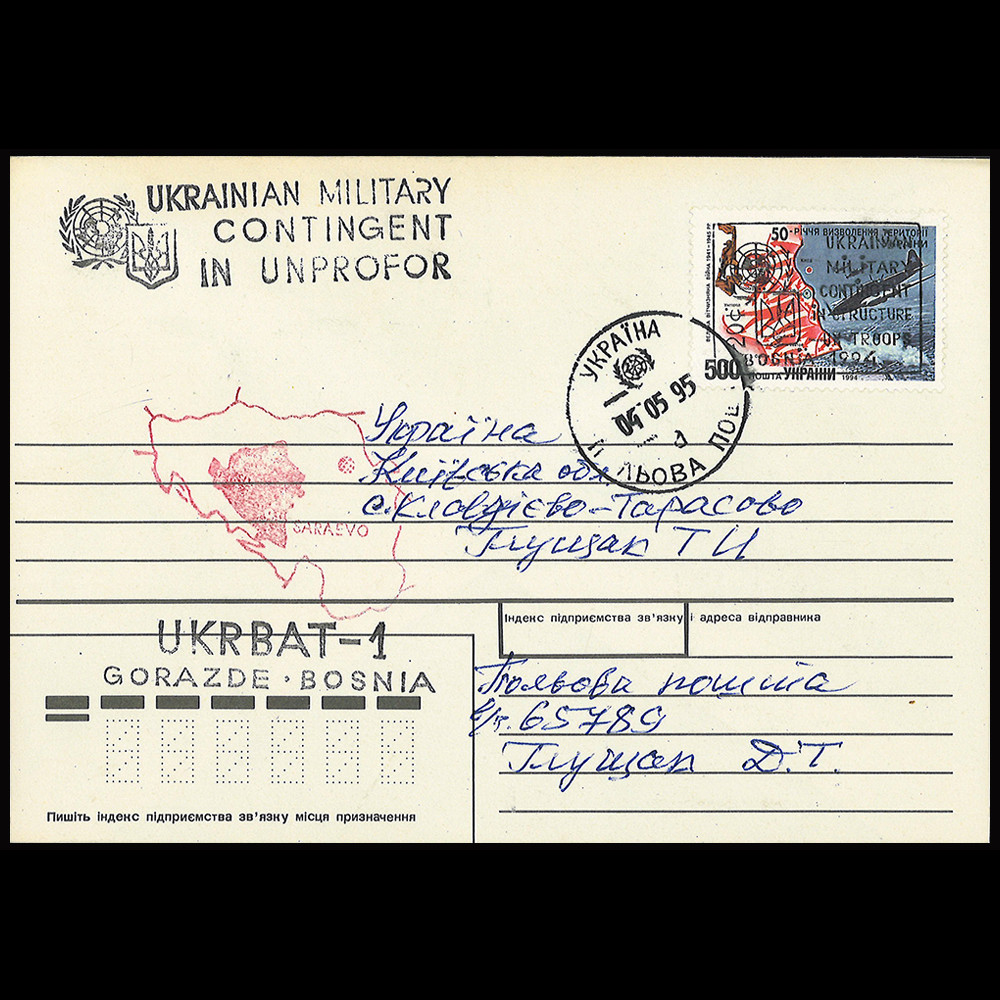 UKRAINIAN MILITARY
CONTINGENT
IN UNPROFOR
50-РІЧЧЯ ВИЗВОЛЕННЯ ТЕРИТОРІЇ
УКРАЇНИ
ВІЙНА 1941-1945 РР
UKRAINIAN
MILITARY
CONTINGENT
IN STRUCTURE
UN TROOPS
BOSNIA-1994
500
ПОШТА УКРАЇНИ 1994
УКРАЇНА
04 05 95
ЛЬОВА ПОШ
Україна
Київська обл
с. Клавдієво-Тарасово
Глущак Т И
SARAEVO
UKRBAT-1
GORAZDE · BOSNIA
Індекс підприємства зв'язку і адреса відправника
Польова пошта
в/ч. 65789
Глущак Д.Т.
Пишіть індекс підприємства зв'язку місця призначення